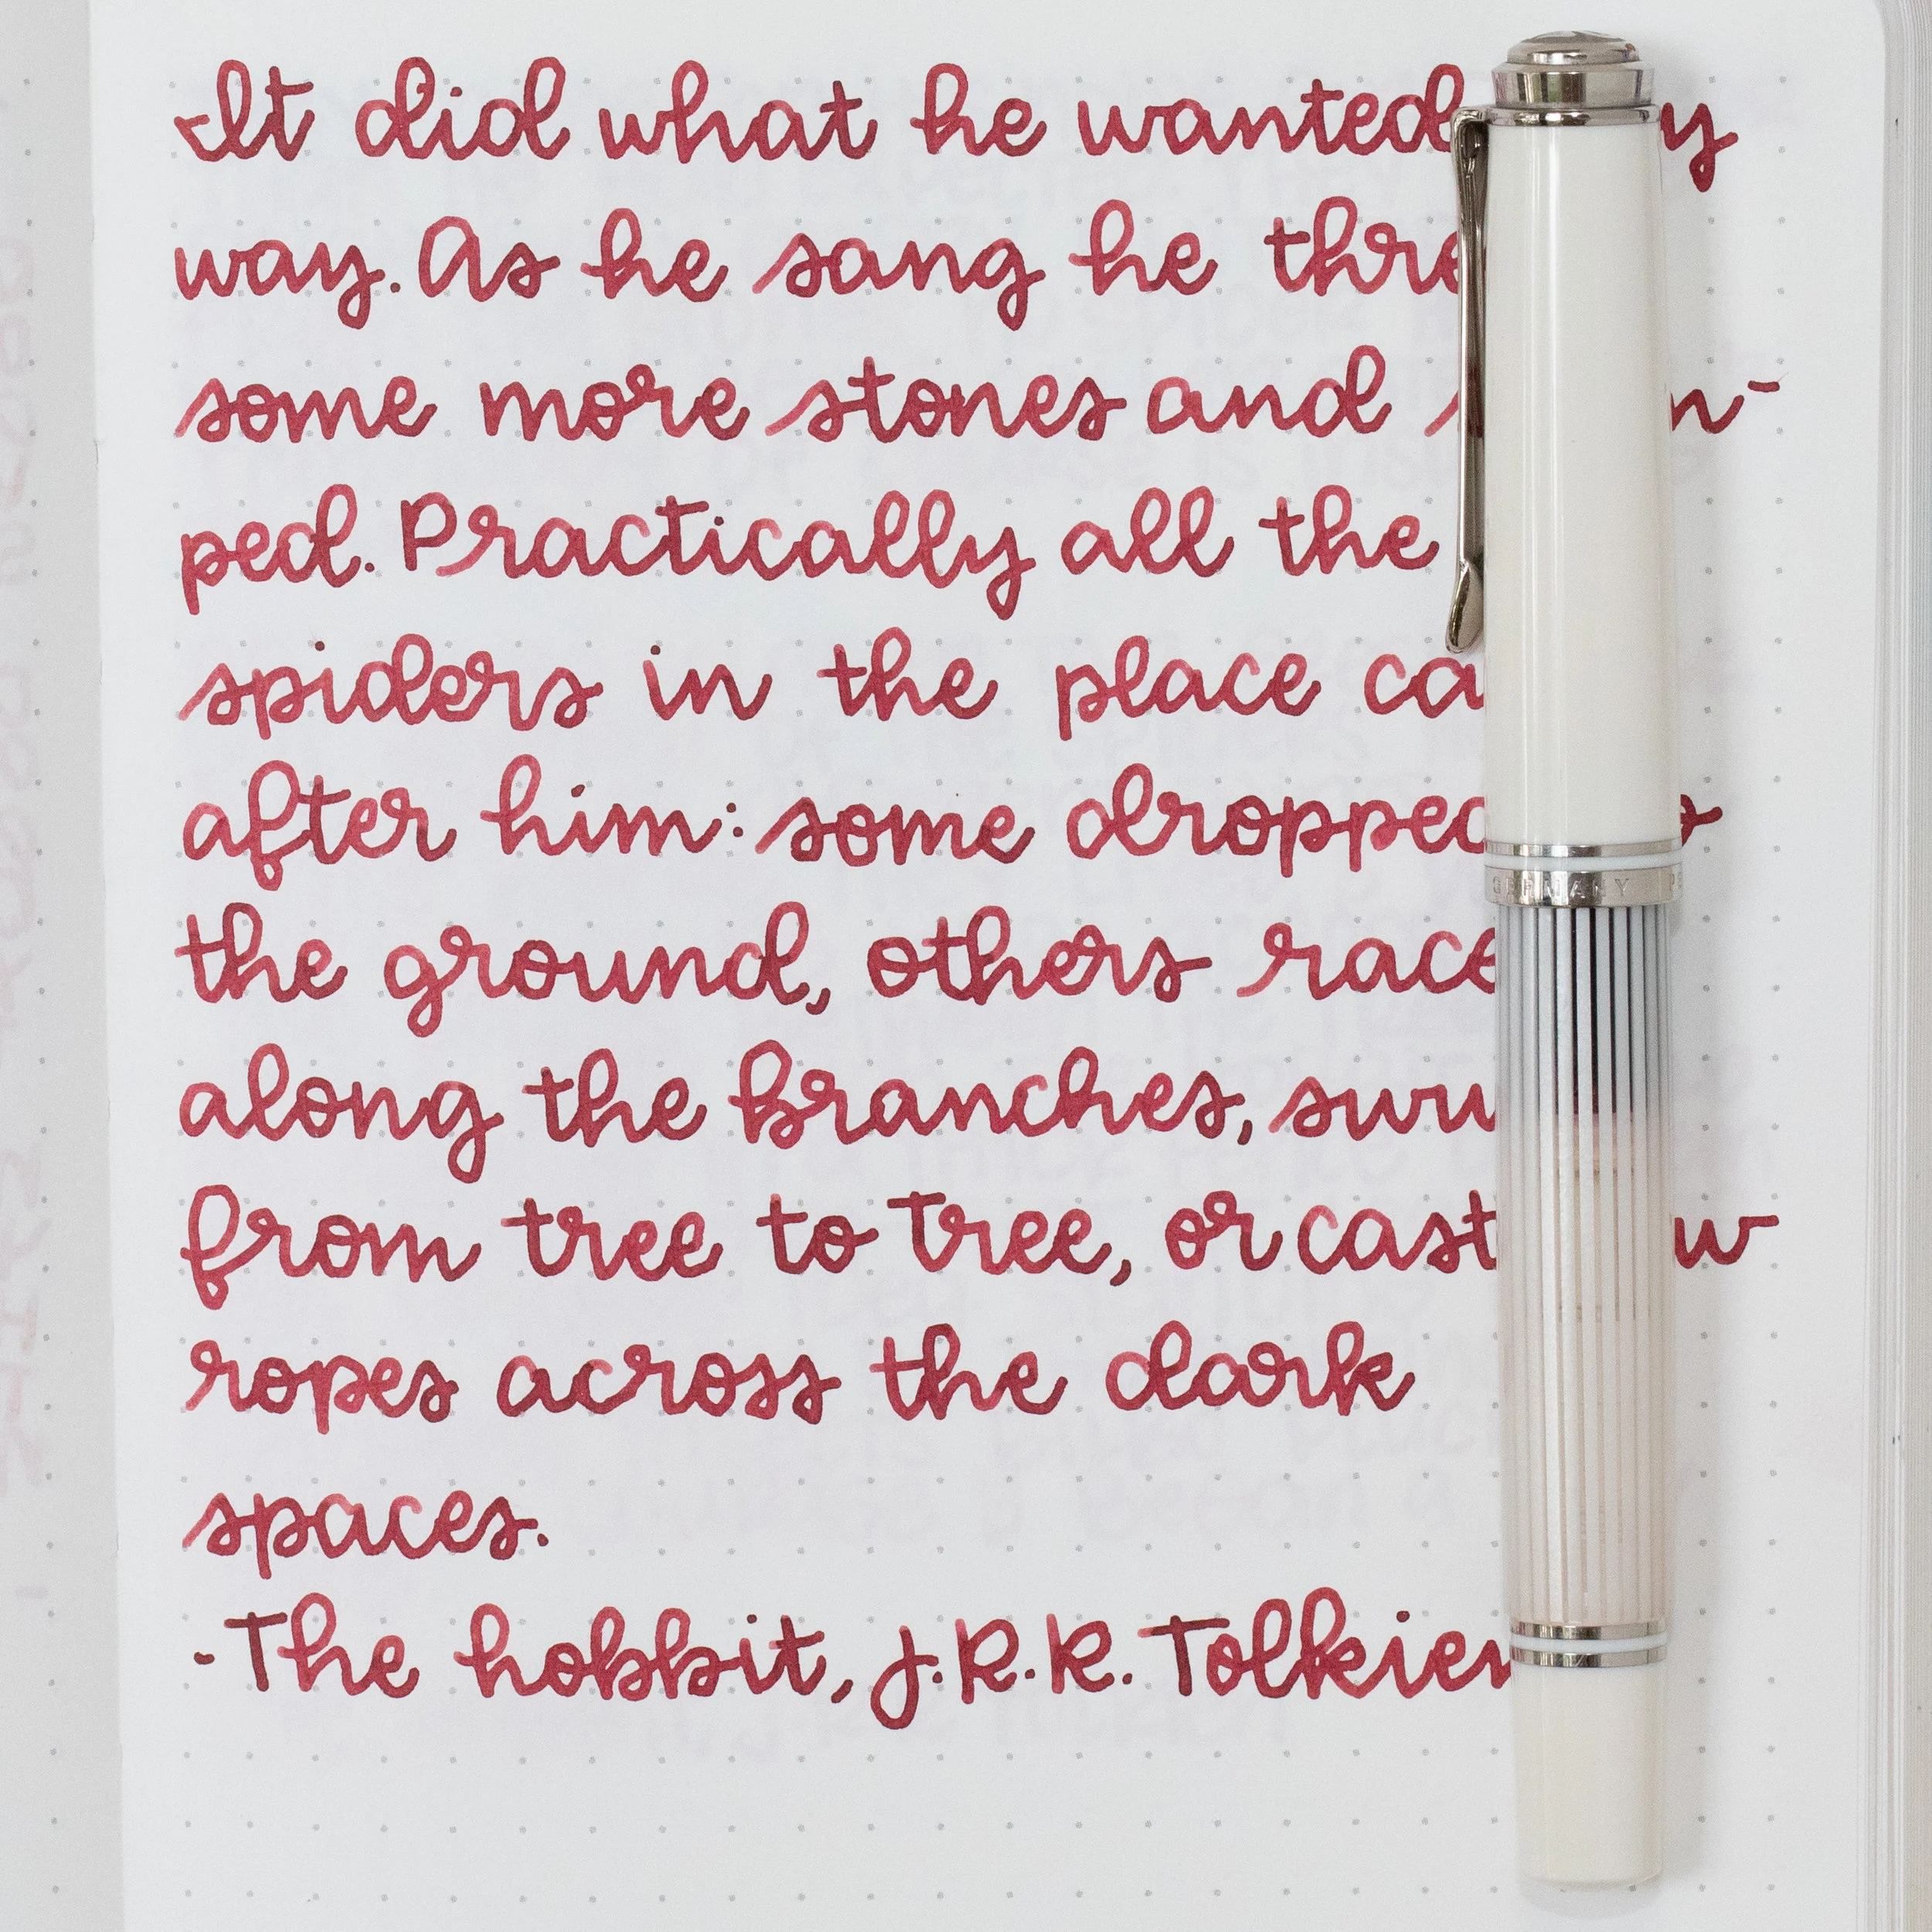 It did what he wanted
way. As he sang he
some more stones and
ped. Practically all the
spiders in the place
after him: some dropped
the ground, others
along the branches,
from tree to tree, or cast
ropes across the dark
spaces.
-The hobbit, J.R.R. Tolkien
GERMANY